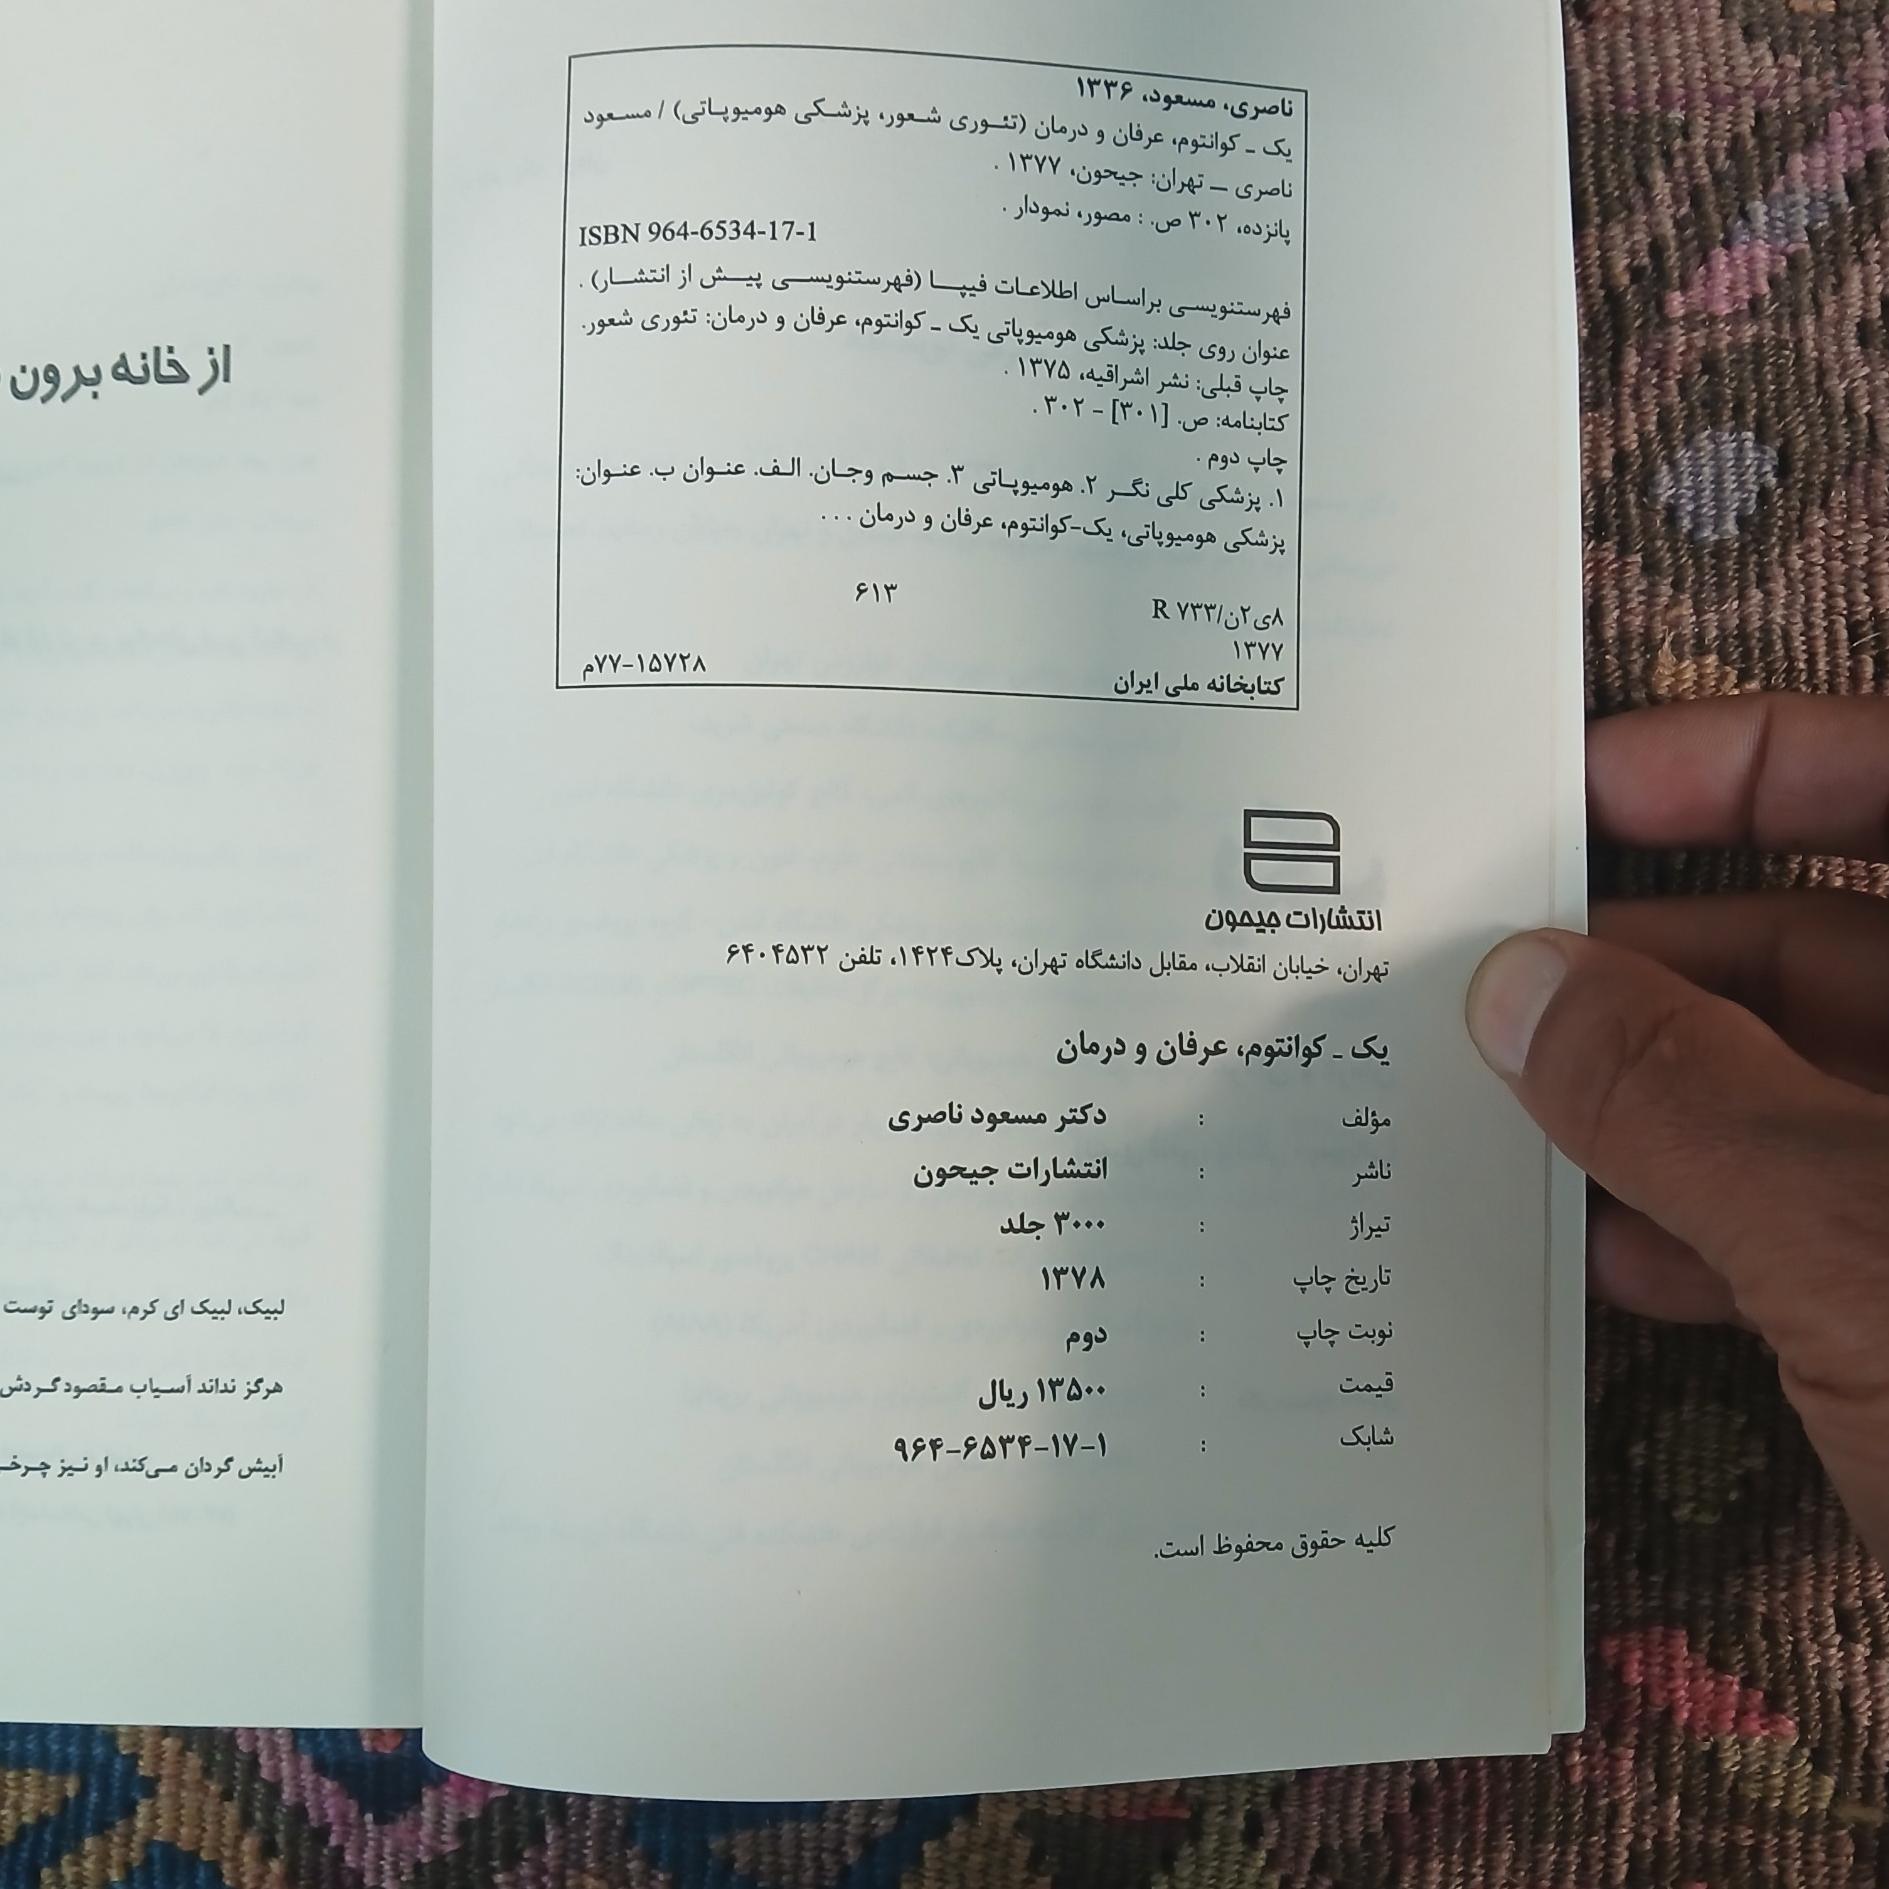 ناصری، مسعود، ۱۳۳۶
یک ـ کوانتوم، عرفان و درمان (تئوری شعور، پزشکی هومیوپاتی) / مسعود
ناصری ـ تهران: جیحون، ۱۳۷۷ .
پانزده، ۳۰۲ ص. : مصور، نمودار .
ISBN 964-6534-17-1
فهرستنویسی براساس اطلاعات فیپا (فهرستنویسی پیش از انتشار) .
عنوان روی جلد: پزشکی هومیوپاتی یک ـ کوانتوم، عرفان و درمان: تئوری شعور.
چاپ قبلی: نشر اشراقیه، ۱۳۷۵ .
کتابنامه: ص. [۳۰۱] - ۳۰۲ .
چاپ دوم .
۱. پزشکی کلی نگر ۲. هومیوپاتی ۳. جسم وجان. الف. عنوان ب. عنوان:
پزشکی هومیوپاتی، یک-کوانتوم، عرفان و درمان . . .
۸ی۲ن/۷۳۳ R
۶۱۳
۱۳۷۷
کتابخانه ملی ایران
۷۷-۱۵۷۲۸م
انتشارات جیحون
تهران، خیابان انقلاب، مقابل دانشگاه تهران، پلاک۱۴۲۴، تلفن ۶۴۰۴۵۳۲
یک ـ کوانتوم، عرفان و درمان
مؤلف : دکتر مسعود ناصری
ناشر : انتشارات جیحون
تیراژ : ۳۰۰۰ جلد
تاریخ چاپ : ۱۳۷۸
نوبت چاپ : دوم
قیمت : ۱۳۵۰۰ ریال
شابک : ۹۶۴-۶۵۳۴-۱۷-۱
کلیه حقوق محفوظ است.
از خانه برون
لبیک، لبیک ای کرم، سودای توست
هرگز نداند آسیاب مقصود گردش
آبیش گردان می‌کند، او نیز چرخ